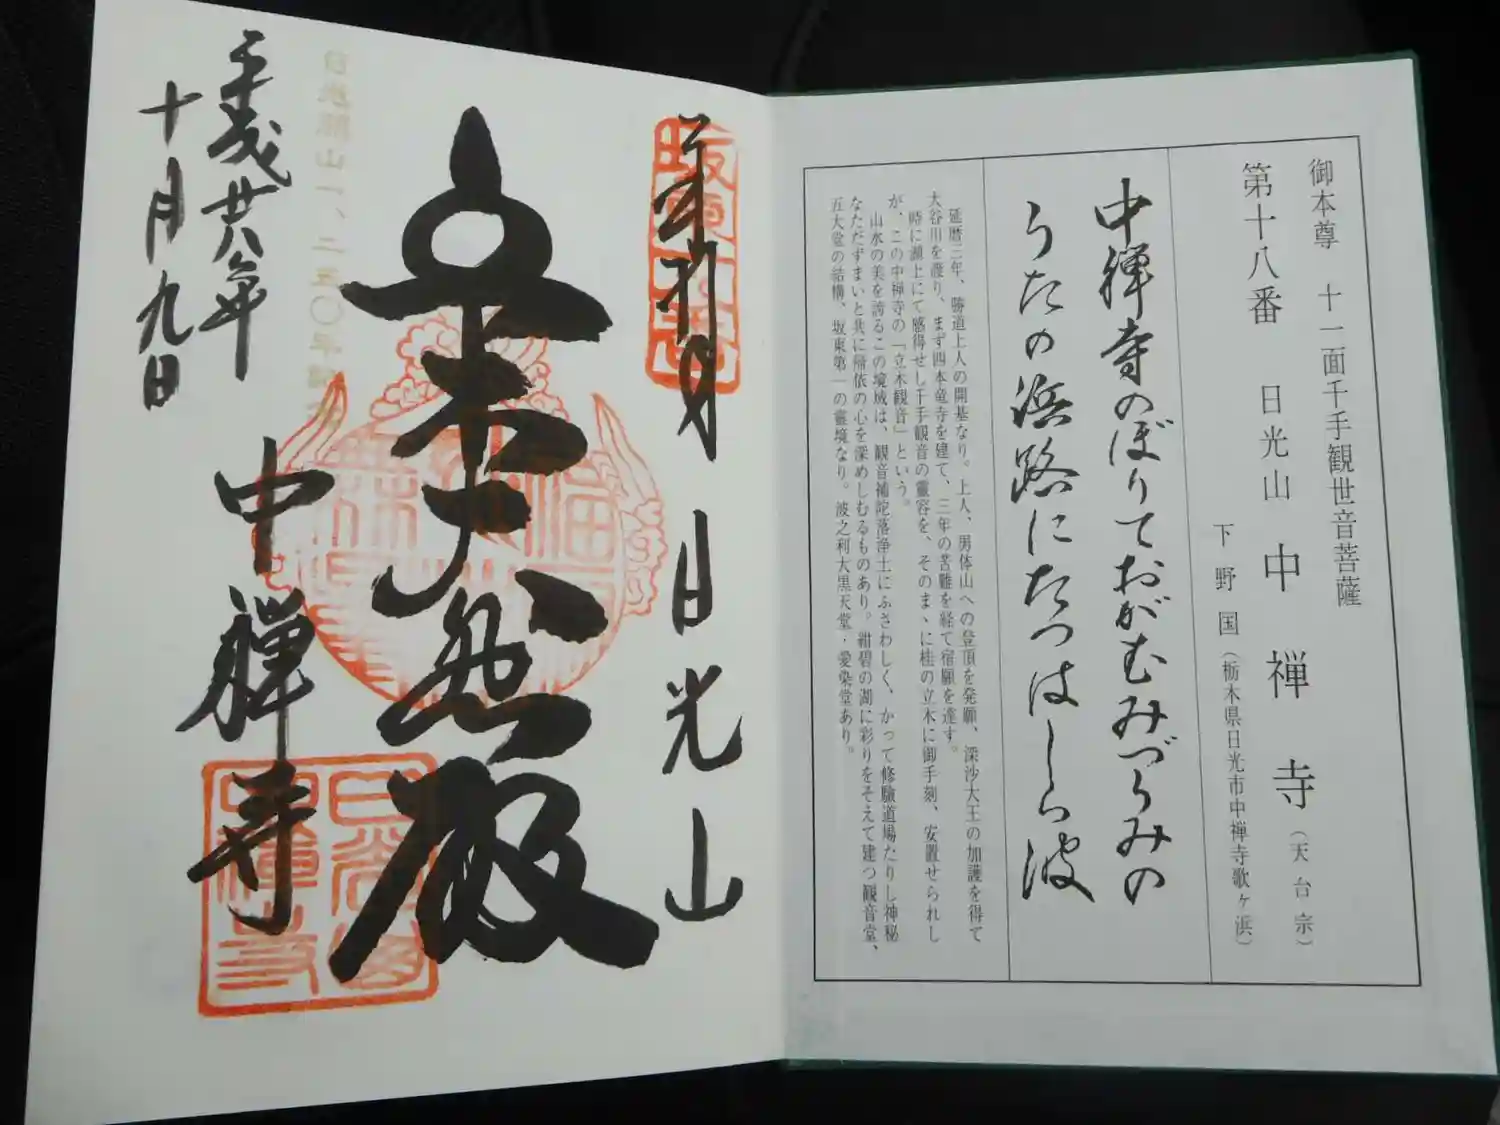 御本尊 十一面千手観世音菩薩
第十八番 日光山 中禅寺(天台宗)
下野国(栃木県日光市中禅寺歌ヶ浜)
中禅寺のぼりておがむみづうみの
うたの浜路にたつはしら波
延暦三年、勝道上人の開基なり。上人、男体山への登頂を発願、深沙大王の加護を得て
大谷川を渡り、まず四本竜寺を建て、三年の苦難を経て宿願を達す。
時に湖上にて感得せし千手観音の霊容を、そのまゝに桂の立木に御手刻、安置せられし
が、この中禅寺の「立木観音」という。
山水の美を誇るこの境域は、観音補陀落浄土にふさわしく、かって修験道場たりし神秘
なたたずまいと共に帰依の心を深めしむるものあり。紺碧の湖に彩りをそえて建つ観音堂、
五大堂の結構、坂東第一の霊境なり。波之利大黒天堂・愛染堂あり。
日光山
日光開山一、二五〇年
平成廿八年
十月九日
中禅寺